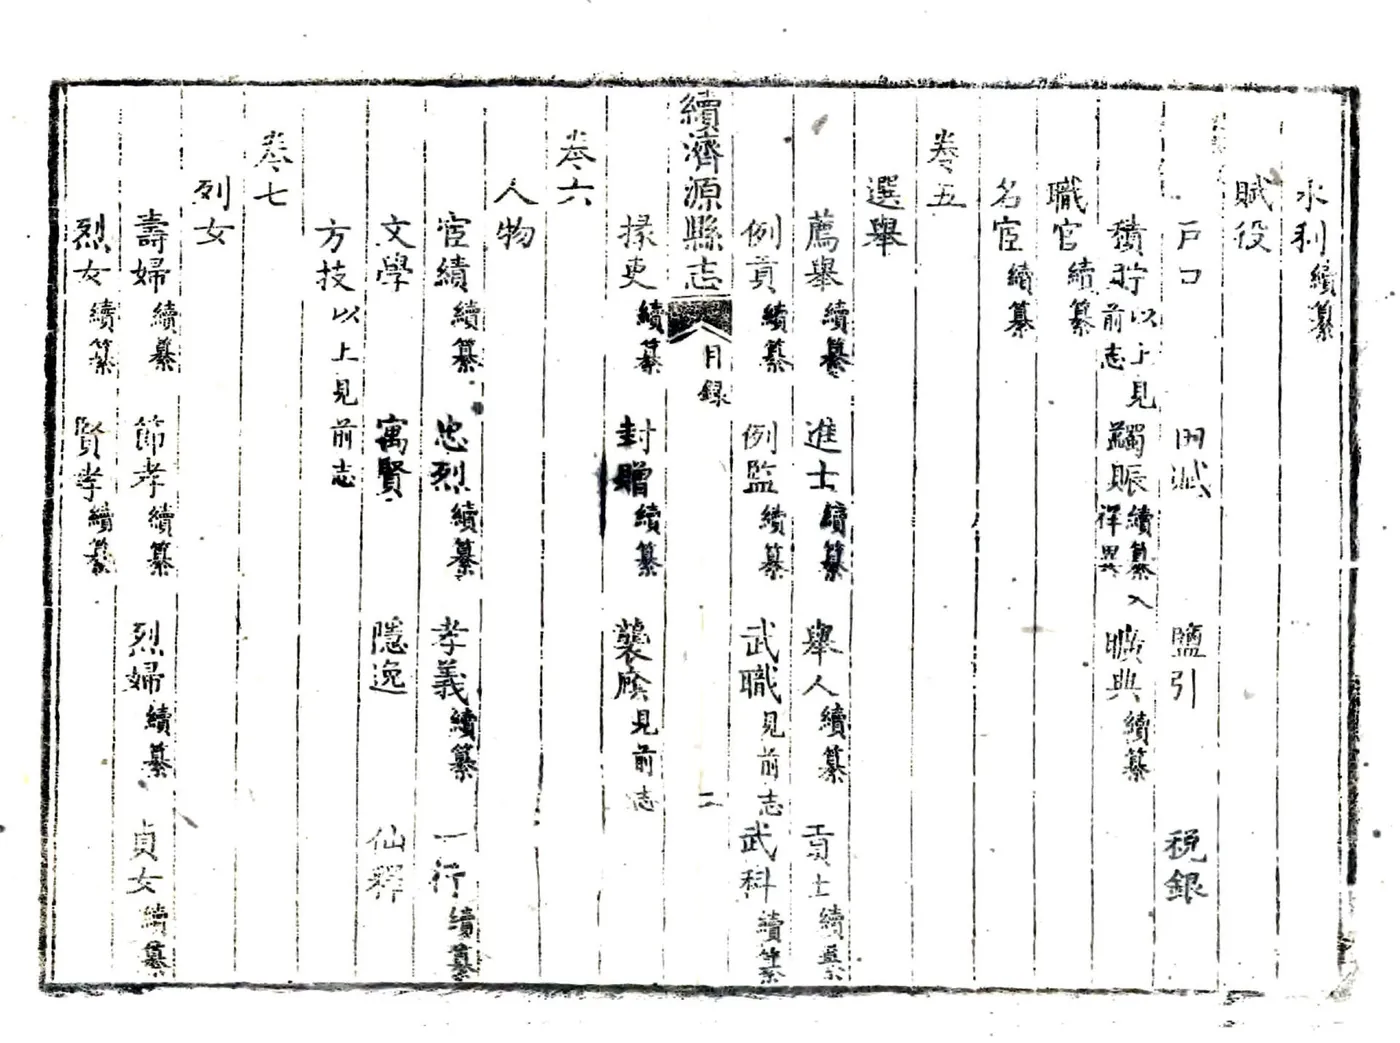 水利續纂
賦役
戶口 田賦 鹽引 稅銀
積貯以上見前志 蠲賑續纂祥異入 曠典續纂
職官續纂
名宦續纂
卷五
選舉
薦舉續纂 進士續纂 舉人續纂 貢士續纂
例貢續纂 例監續纂 武職見前志 武科續纂
續濟源縣志 目錄 二
掾吏續纂 封贈續纂 襲廕見前志
卷六
人物
宦績續纂 忠烈續纂 孝義續纂 一行續纂
文學 寓賢 隱逸 仙釋
方技以上見前志
卷七
列女
壽婦續纂 節孝續纂 烈婦續纂 貞女續纂
烈女續纂 賢孝續纂